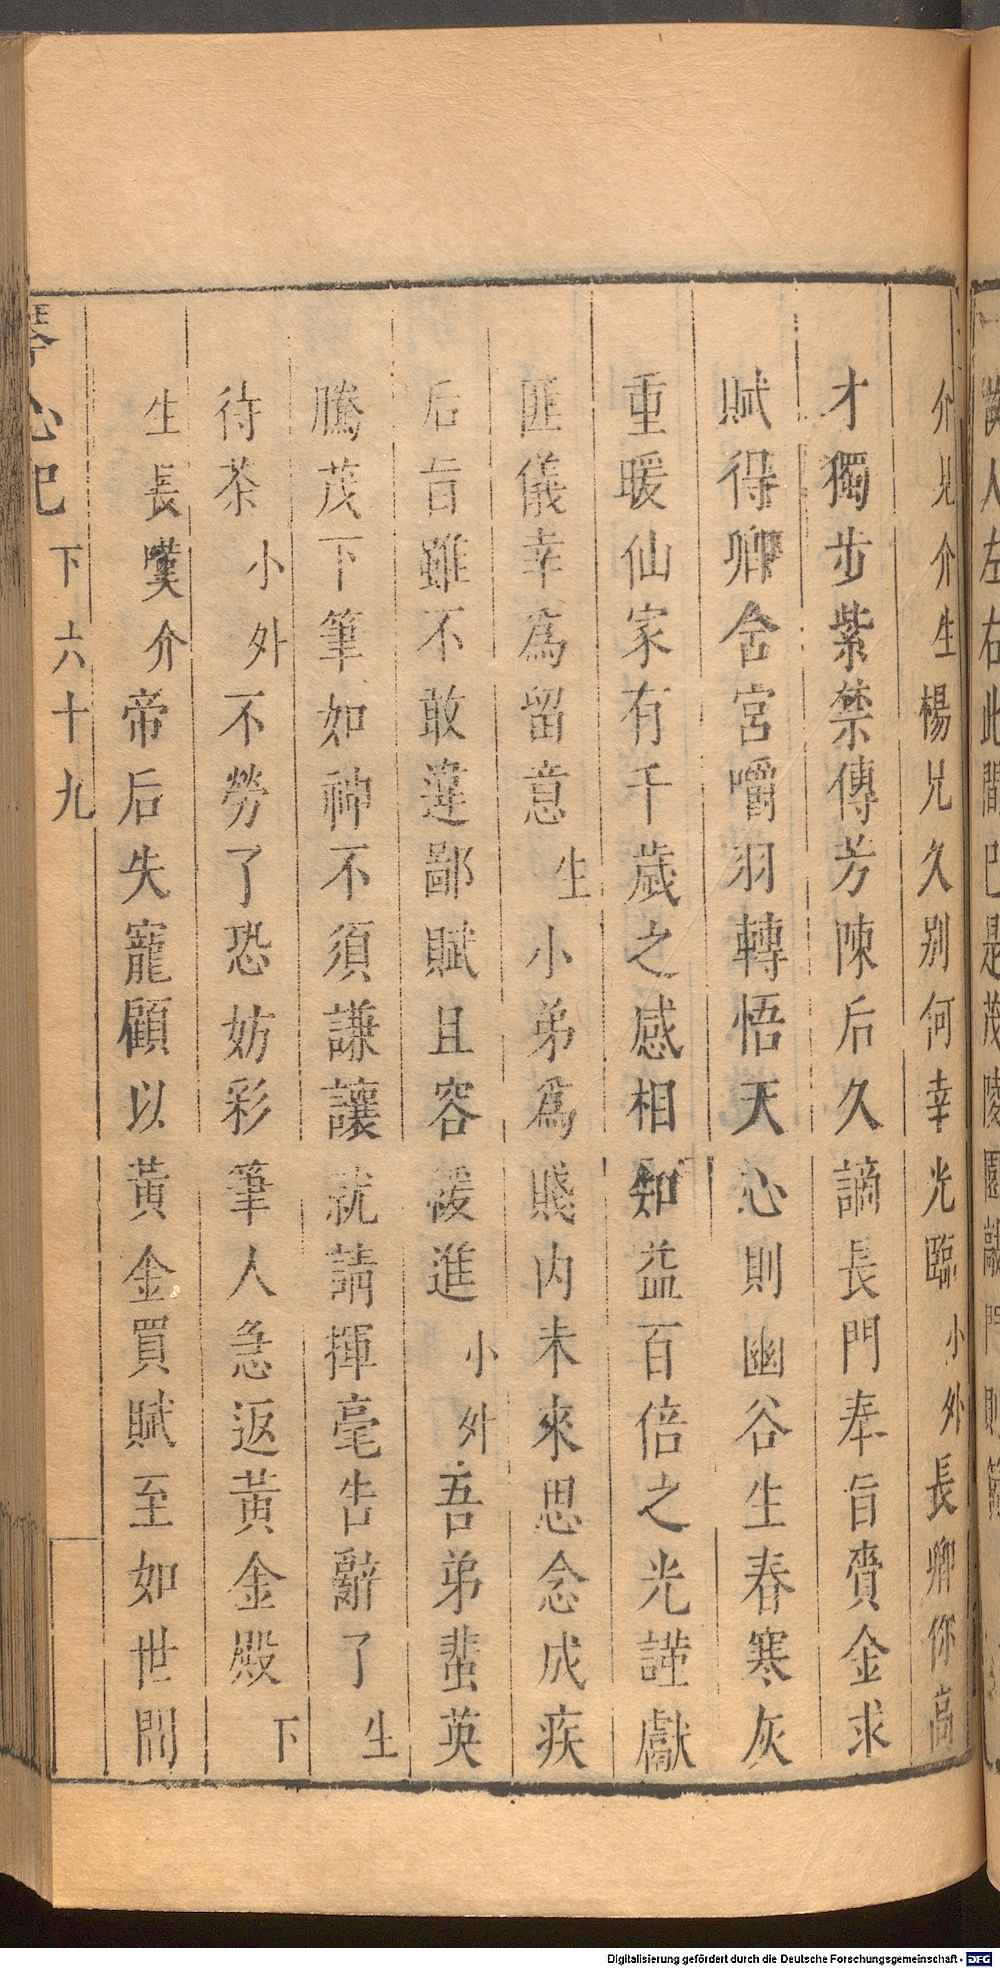 介見介生楊兄久別何幸光臨小外長卿你高
才獨步紫禁傳芳陳后久謫長門奉旨賫金求
賦得卿含宮嚼羽轉悟天心則幽谷生春寒灰
重暖仙家有千歲之感相知益百倍之光謹獻
匪儀幸爲留意生小弟爲賤内未來思念成疾
后旨雖不敢違鄙賦且容緩進小外吾弟蜚英
騰茂下筆如神不須謙讓就請揮毫告辭了生
待茶小外不勞了恐妨彩筆人急返黃金殿下
生長嘆介帝后失寵顧以黃金買賦至如世間
琴心記 下 六十九
Digitalisierung gefördert durch die Deutsche Forschungsgemeinschaft - DFG